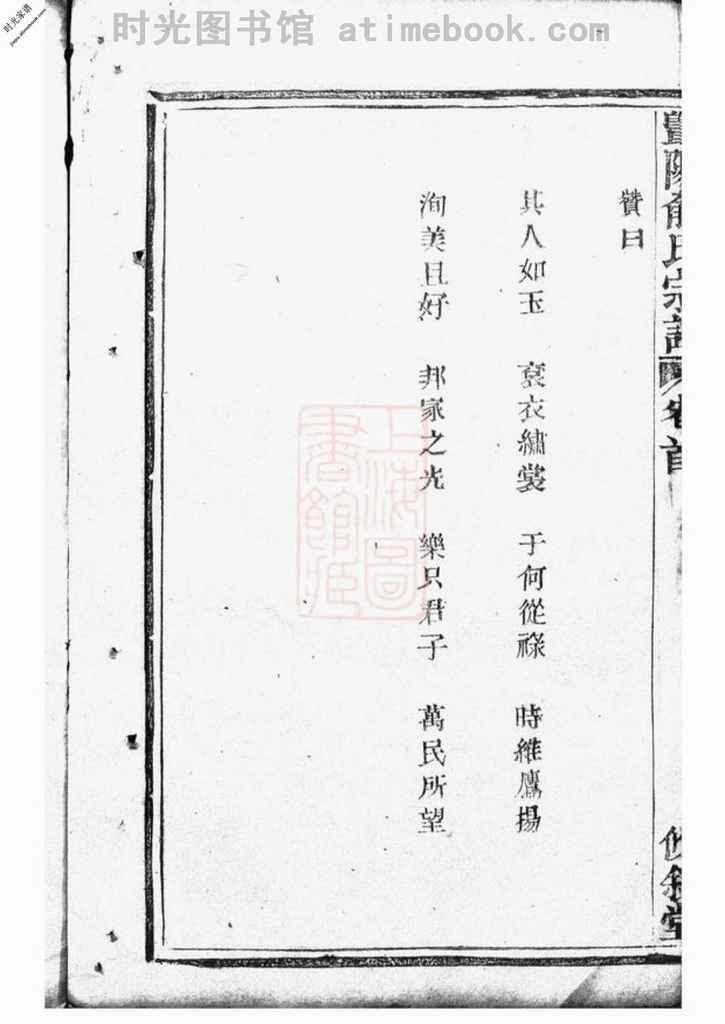 时光图书馆 atimebook.com
时光家谱
豐陽俞氏宗譜 卷首
贊曰
其人如玉 袞衣繡裳 于何從祿 時維鷹揚
洵美且好 邦家之光 樂只君子 萬民所望
上海圖書館藏